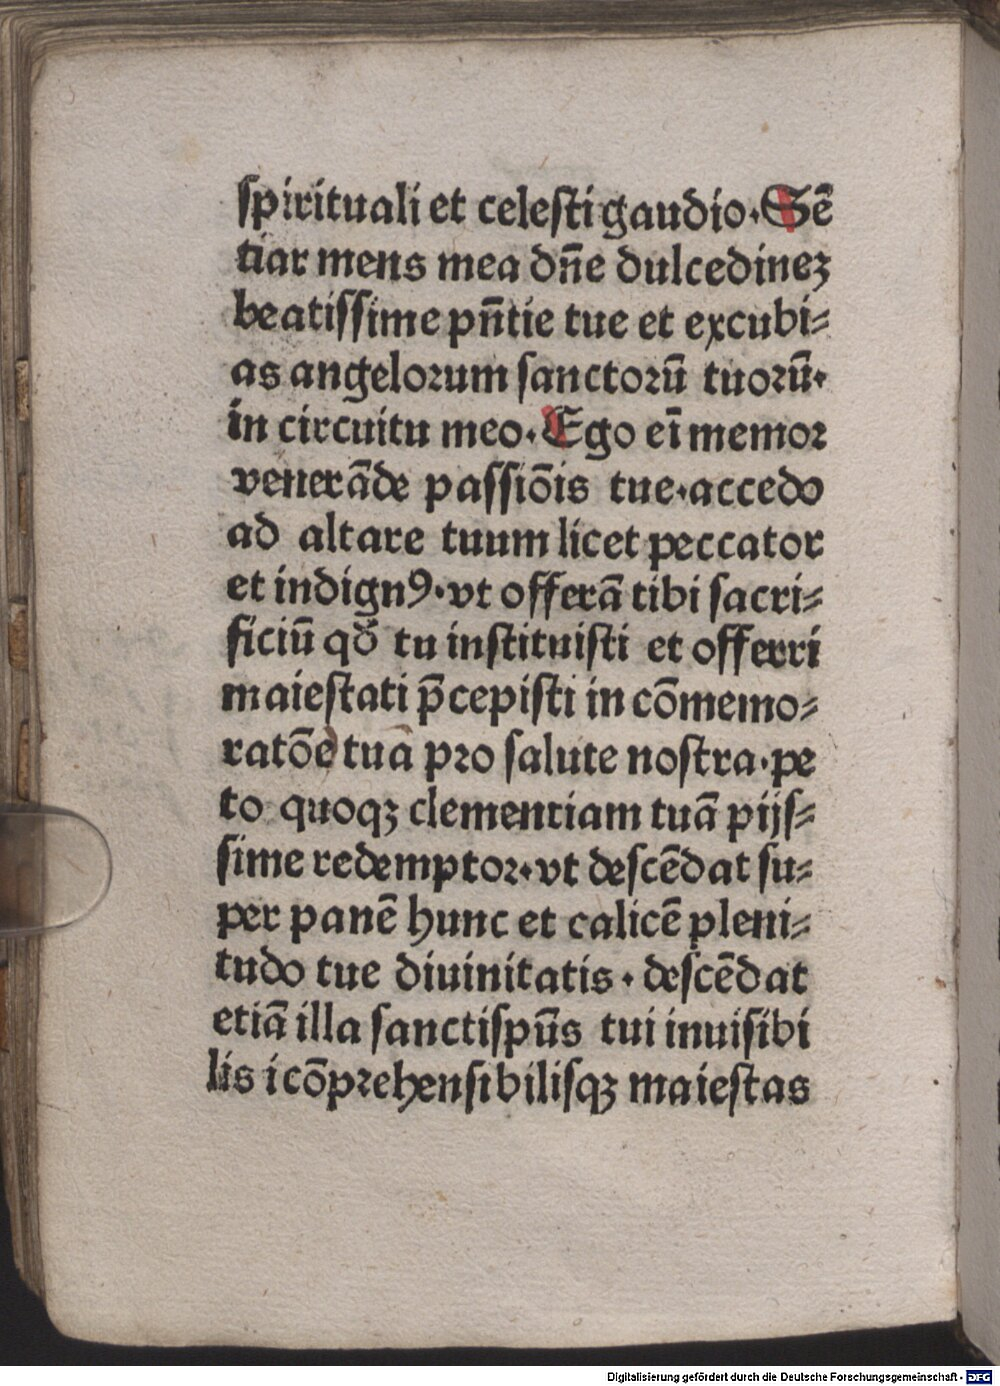 spirituali et celesti gaudio. Sē
tiar mens mea dn̄e dulcedineꝫ
beatissime pn̄tie tue et excubi⸗
as angelorum sanctorū tuorū.
in circuitu meo. Ego eī memor
venerāde passiōis tue. accedo
ad altare tuum licet peccator
et indignꝰ. vt offerā tibi sacri⸗
ficiū qd̓ tu instituisti et offerri
maiestati p̄cepisti in cōmemo⸗
ratōe tuā pro salute nostra. pe
to quoqꝫ clementiam tuā pijs⸗
sime redemptor. vt descēdat su⸗
per panē hunc et calicē pleni⸗
tudo tue diuinitatis. descēdat
etiā illa sanctispūs tui inuisibi
lis icōprehensibilisqꝫ maiestas
Digitalisierung gefördert durch die Deutsche Forschungsgemeinschaft - DFG